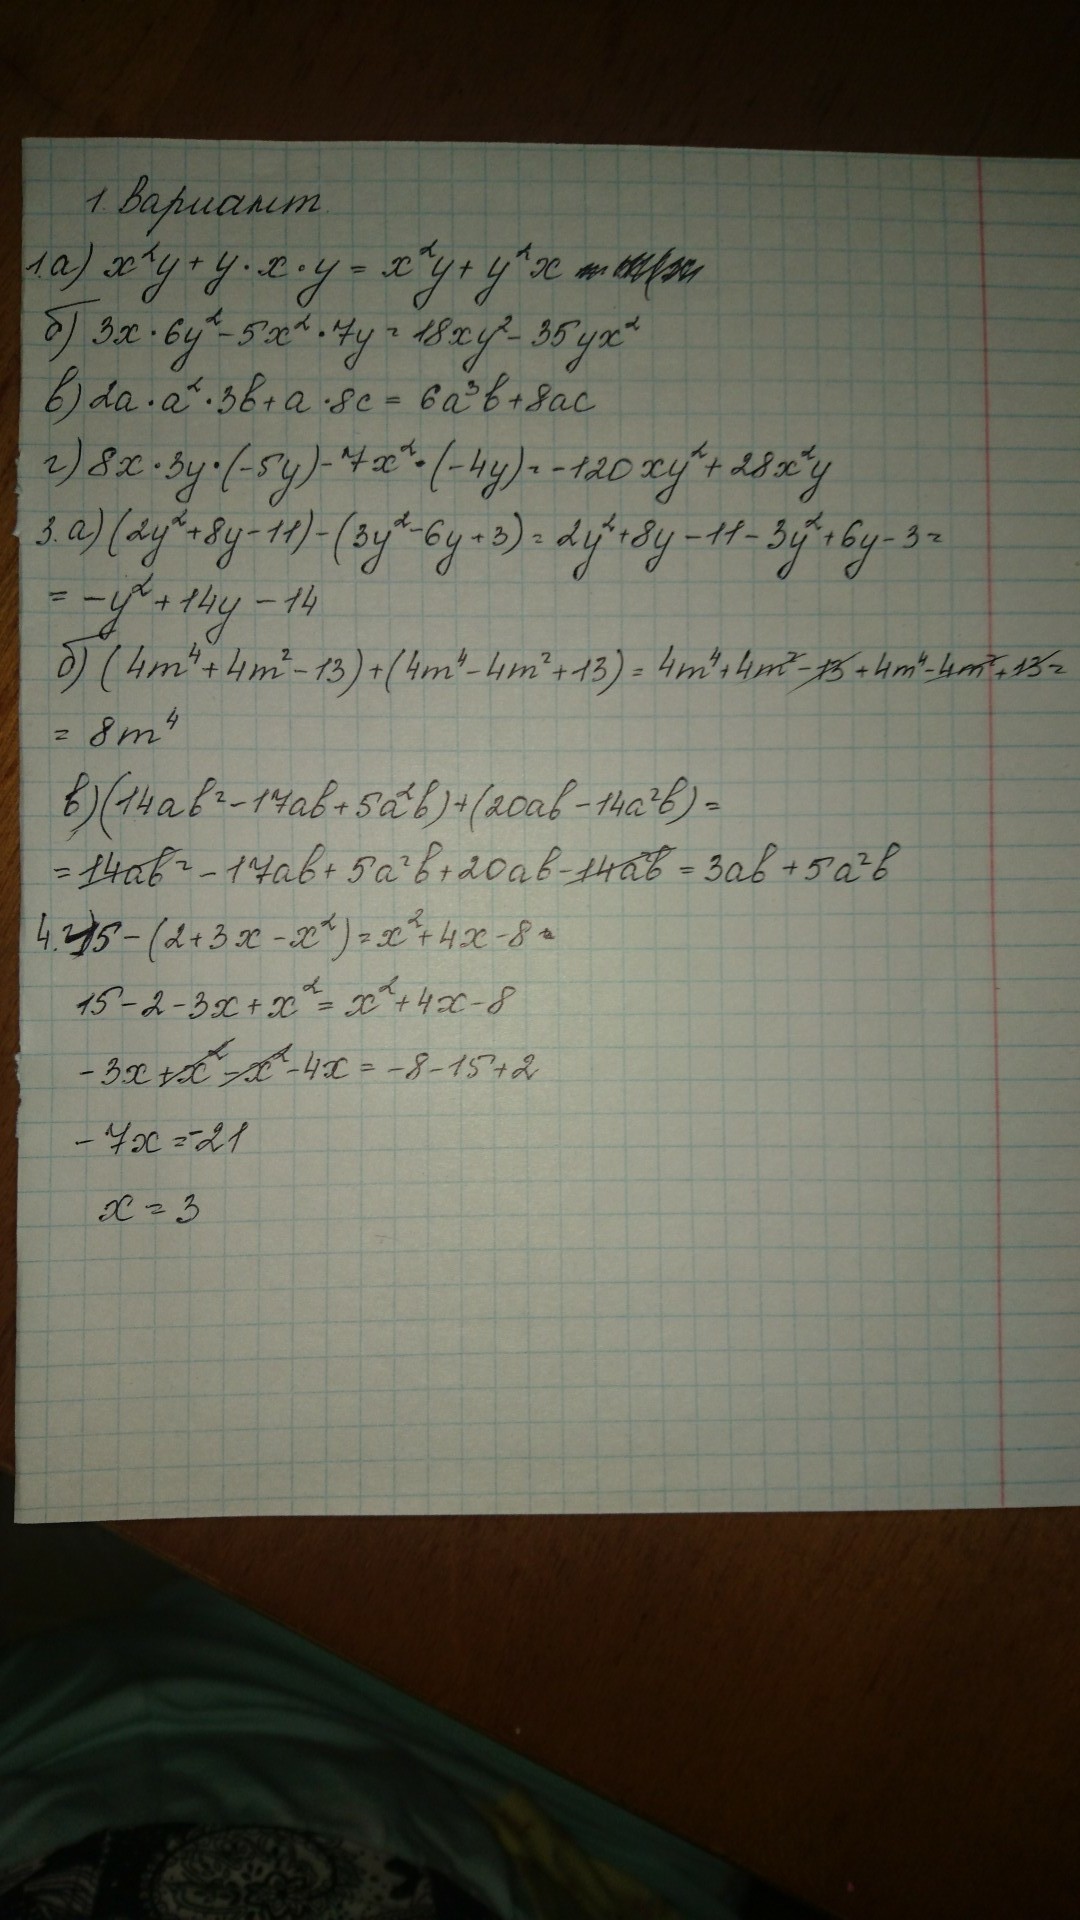 1. Вариант
1.а) x²y + y · x · y = x²y + y²x
б) 3x · 6y² - 5x² · 7y = 18xy² - 35yx²
в) 2a · a² · 3b + a · 8c = 6a³b + 8ac
г) 8x · 3y · (-5y) - 7x² · (-4y) = -120xy² + 28x²y
3. а) (2y² + 8y - 11) - (3y² - 6y + 3) = 2y² + 8y - 11 - 3y² + 6y - 3 =
= -y² + 14y - 14
б) (4m⁴ + 4m² - 13) + (4m⁴ - 4m² + 13) = 4m⁴ + 4m² - 13 + 4m⁴ - 4m² + 13 =
= 8m⁴
в) (14ab² - 17ab + 5a²b) + (20ab - 14a²b) =
= 14ab² - 17ab + 5a²b + 20ab - 14a²b = 3ab + 5a²b
4. 15 - (2 + 3x - x²) = x² + 4x - 8
15 - 2 - 3x + x² = x² + 4x - 8
-3x + x² - x² - 4x = -8 - 15 + 2
-7x = -21
x = 3